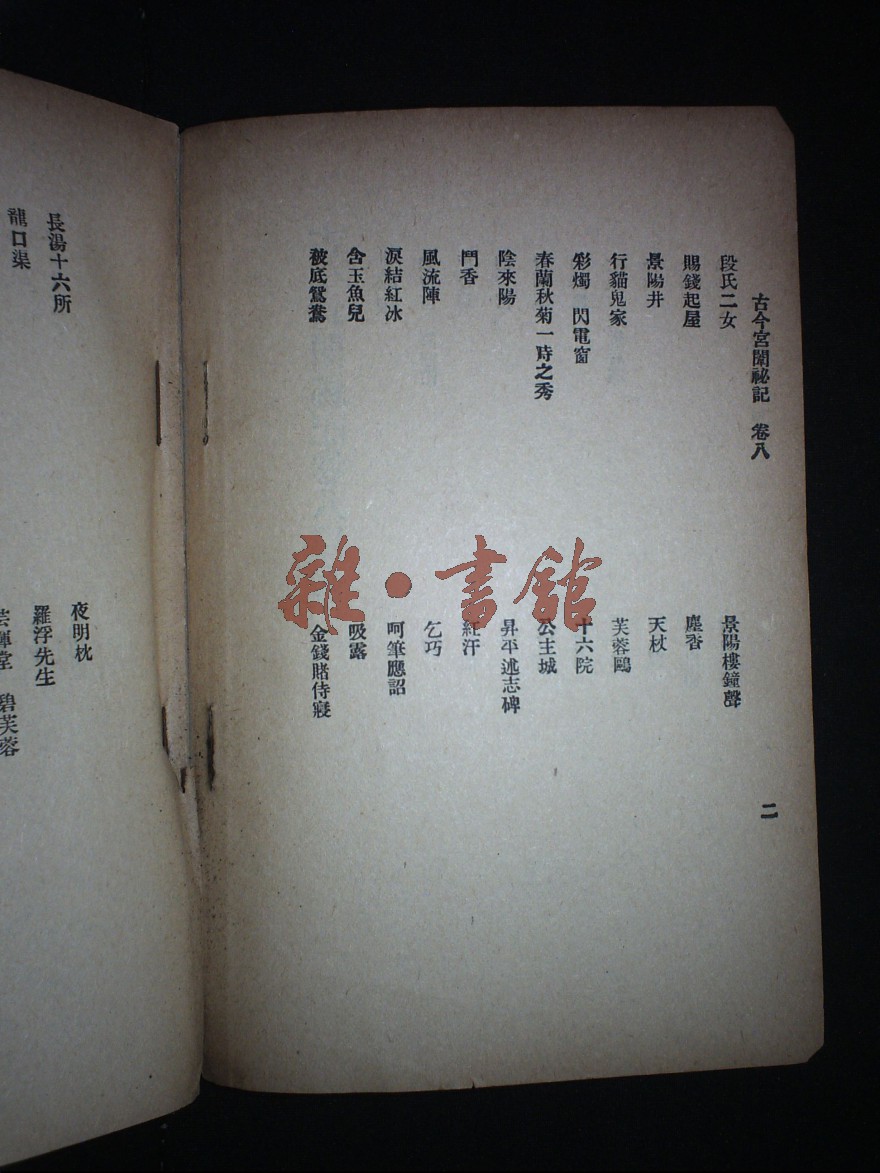 古今宮闈祕記 卷八
二
段氏二女
景陽樓鐘聲
賜錢起屋
塵香
景陽井
天杖
行貓鬼家
芙蓉鷗
彩燭 閃電窗
十六院
春蘭秋菊一時之秀
公主城
陰來陽
昇平述志碑
鬥香
紅汗
風流陣
乞巧
淚結紅冰
呵筆應詔
含玉魚兒
吸露
被底鴛鴦
金錢賭侍寢
夜明枕
長湯十六所
羅浮先生
龍口渠
芸輝堂 碧芙蓉
雜·書館